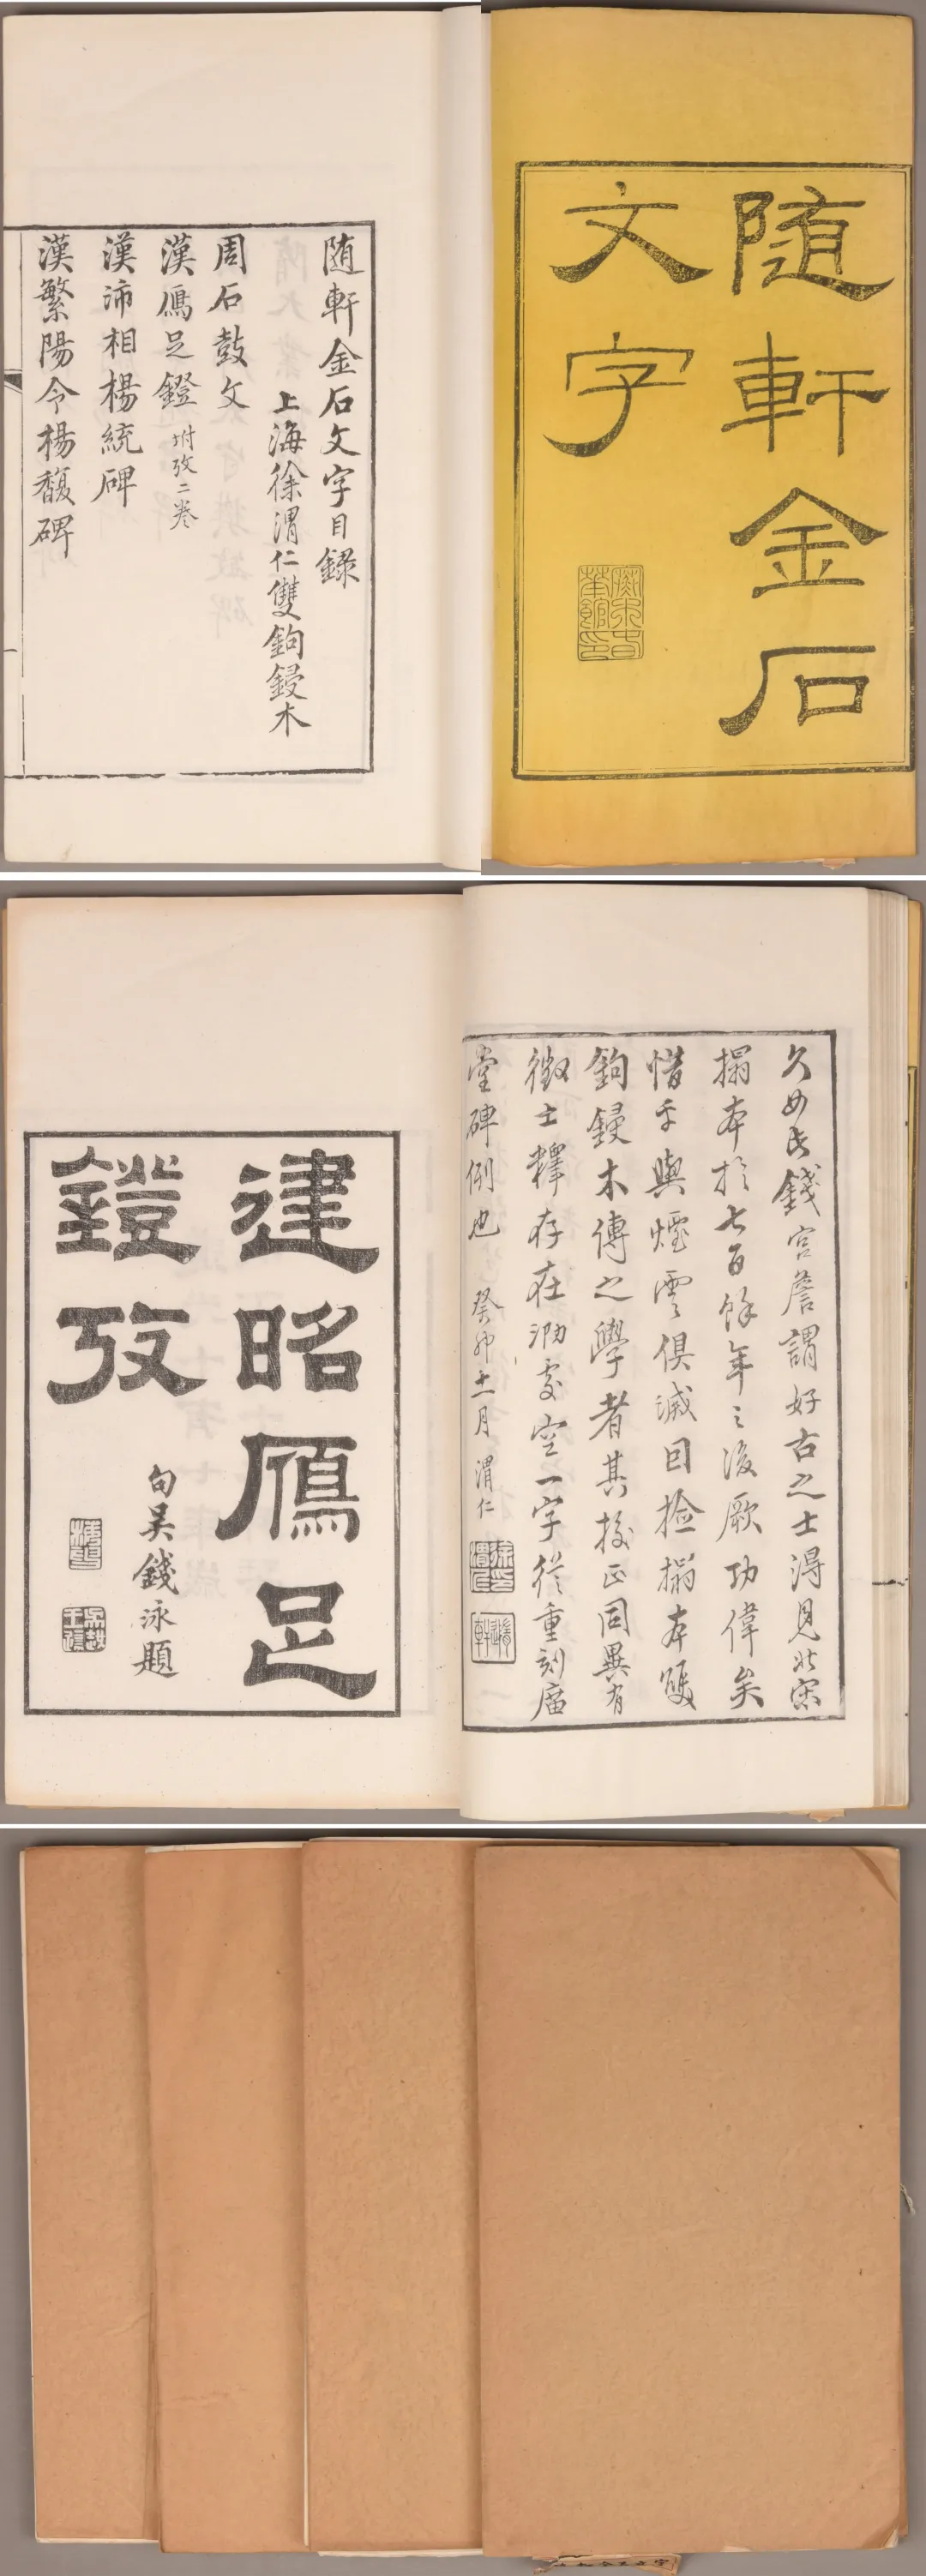 随軒金石
文字
随軒金石文字目録
上海徐渭仁雙鉤鋟木
周石鼓文
漢鴈足鐙坿攷二卷
漢沛相楊統碑
漢繁陽令楊馥碑
久如氏錢宮詹謂好古之士得見北宋
搨本於七百餘年之後厥功偉矣
惜乎與煙雲俱滅因撿搨本雙
鉤鋟木傳之學者其挍正同異有
徵士釋存在泐處空一字從重刻廣
堂碑例也 癸卯十一月 渭仁
建昭鴈足
鐙攷
句吳錢泳題